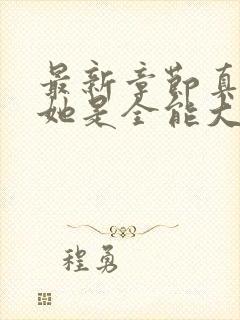 最新章節真
她是全能大
程勇